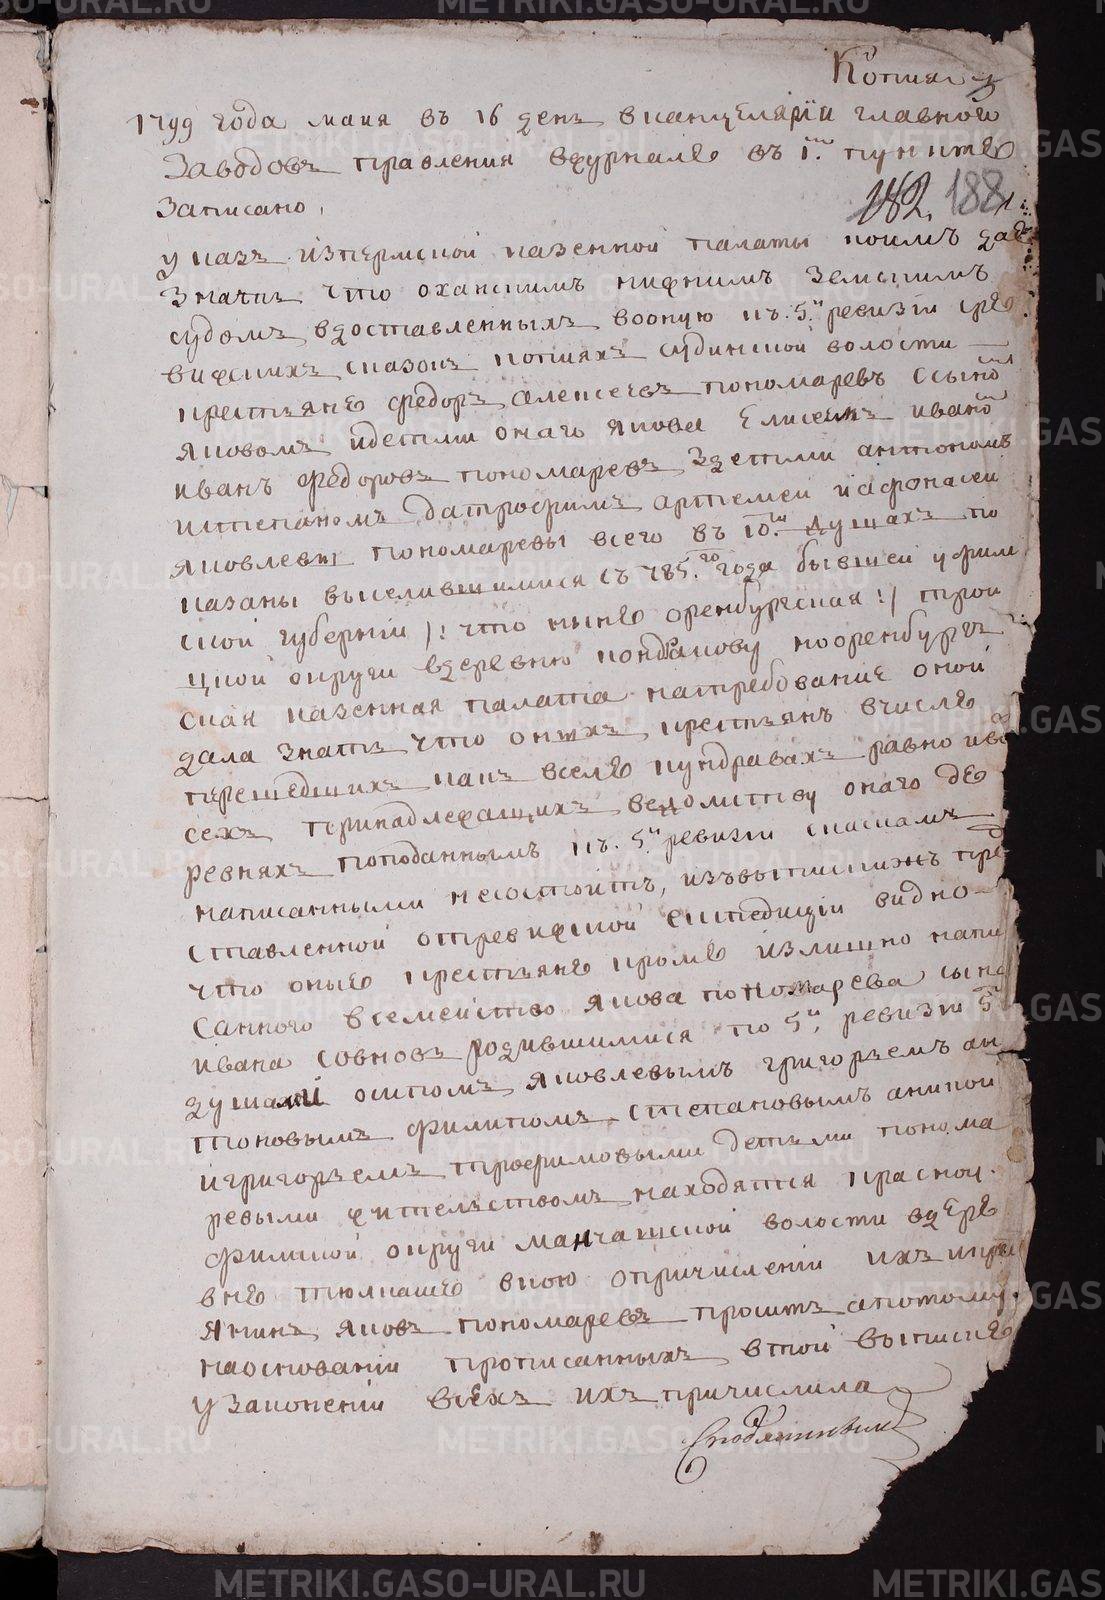 Копия
1799 года маия въ 16 день вканцелярїи главного
заводовъ правления вжурнале въ 1.м пункте
записано,
182. 188
указъ изпермской казенной палаты коимъ дае
значить что оханскимъ нижнимъ земскимъ
судомъ вдоставленныхъ вооную къ 5й ревизїи ре
вижскихъ сказокъ копияхъ судинской волости
крестьяне федоръ алексеевъ пономаревъ ссыно
яковомъ идетми онаго якова елисеемъ ивано
иванъ федоровъ пономаревъ здетми антономъ
истепаномъ датрофимъ артемеи иафонасеи
яковлевы пономаревы всего въ 10ти душахъ по
казаны выселившимися съ 785го года бывшей уфим
ской губернїи /: что ныне оренбургская :/ трои
цкой округи вдеревню кооренбург
ская казенная палата натребование оной
дала знать что оныхъ крестьянъ вчисле
перешедшихъ какъ вселе кундравахъ равно иво
сехъ принадлежащихъ ведомитву онаго де
ревняхъ поподаннымъ къ 5й ревизїи спискамъ
написанными несостоитъ, извыписижъ пред
ставленной отревижской експедицїи видно
что оные крестьяне кроме излишно напи
санного всемейство якова пономарева сына
ивана совновъ родившимися по 5й ревизїи 5ю
душами осипомъ яковлевымъ григорьемъ ан
тоновымъ филипомъ степановымъ аникой
игригорьемъ трофимовыми детьми понома
ревыми жительствомъ находятся красноу
фимской округи манчажской волости вдере
вне тюлкаше вкою опричисленїи ихъ
якинъ яковъ пономаревъ проситъ апотому
наоснованїи прописанныхъ втой выписке
узаконенїи всехъ ихъ причислила